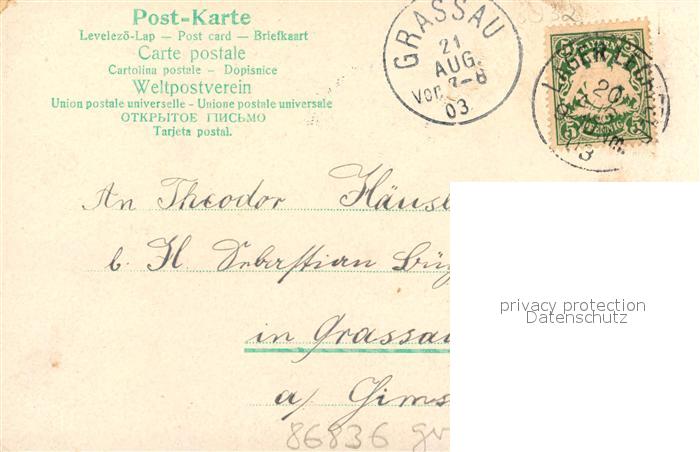 Post-Karte
Levelező-Lap — Post card — Briefkaart
Carte postale
Cartolina postale - Dopisnice
Weltpostverein
Union postale universelle - Unione postale universale
ОТКРЫТОЕ ПИСЬМО
Tarjeta postal.
GRASSAU
21
AUG.
Vor. 7-8
03
20
An Theodor Häusl
b. H. Sebastian
in Grassau
a/
privacy protection
Datenschutz
86836 gr